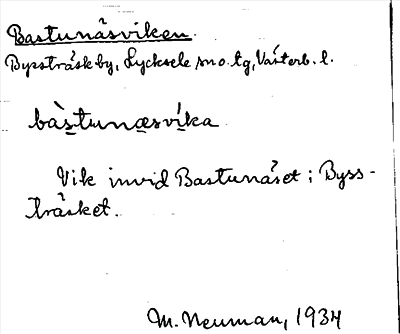 Bastunäsviken.
Bysstråsk by, Lycksele sn o. tg, Västerb. l.
bàstunæsvíka
Vik invid Bastunäset i Byss-
träsket.
M. Neuman, 1934